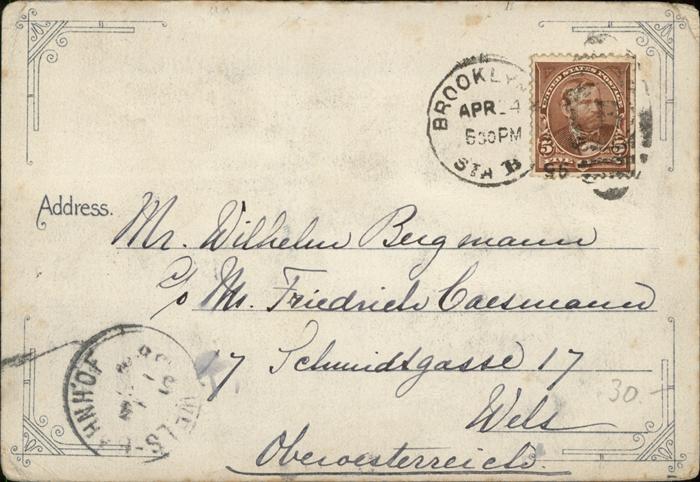 BROOKLYN
APR 4
530PM
STA B
95
UNITED STATES POSTAGE
5 5
FIVE
Address.
Mr. Wilhelm Bergmann
c/o Mr. Friedrich Caesmann
17 Schmidtgasse 17
30.-
Wels
Oberoesterreich.
WELS
BAHNHOF